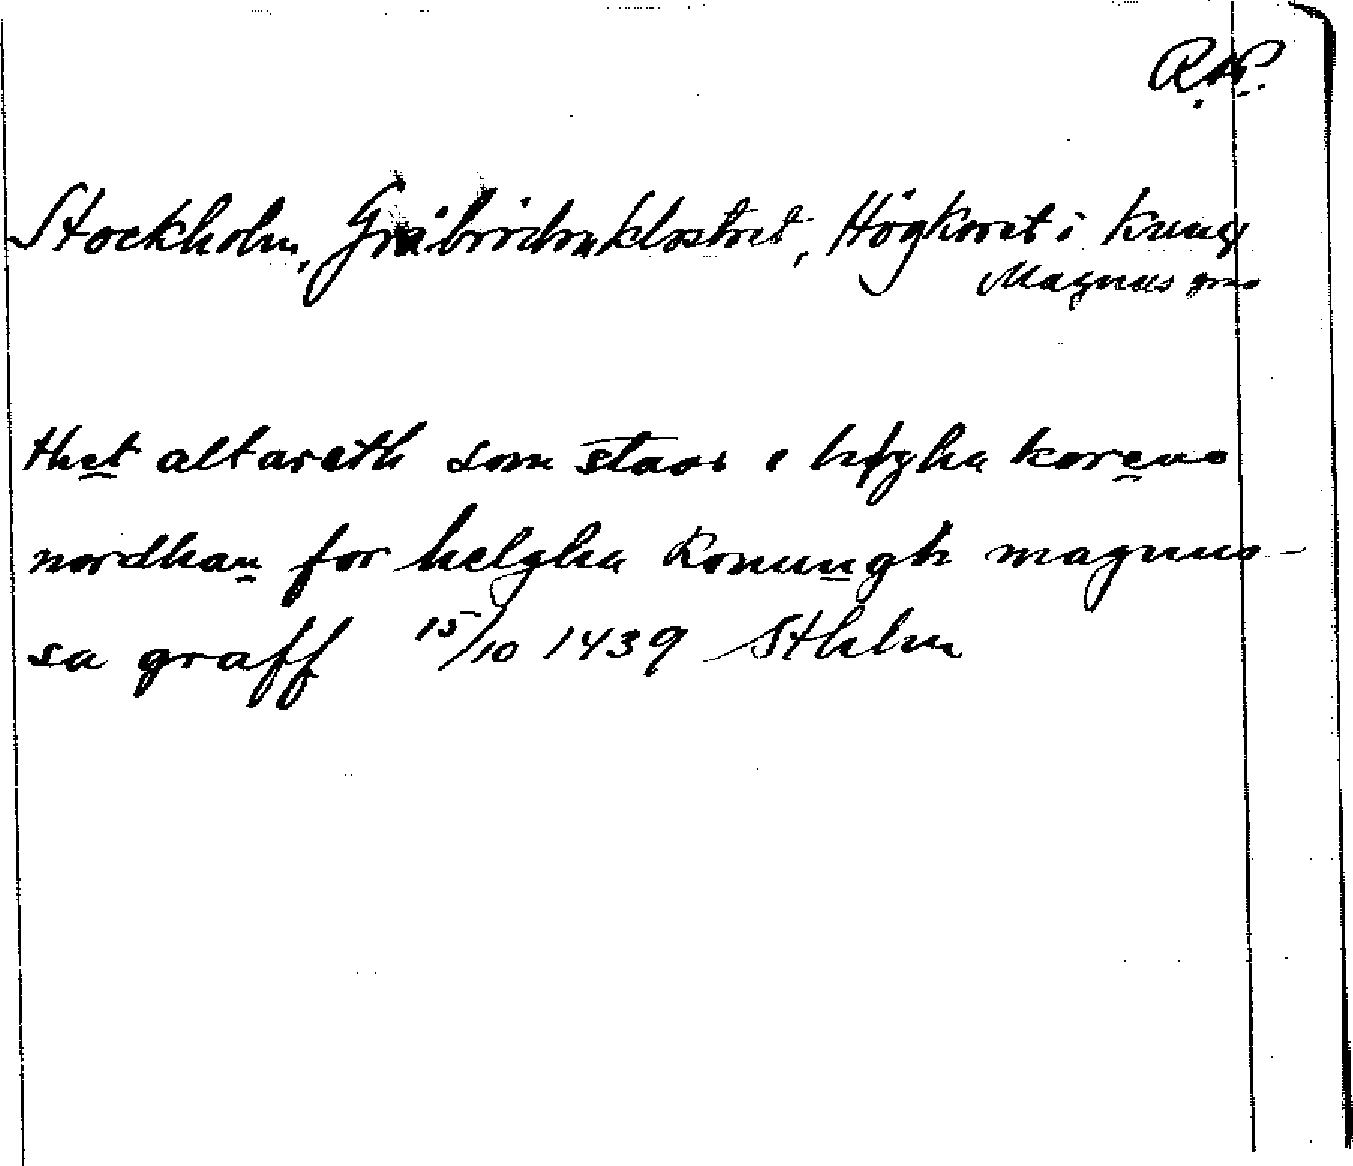 R.A.P.
Stockholm, Gråbrödraklostret, Högkoret i Kung
Magnus grav
thet altareth som staar i høgha koreno
nordhan for helgha konungh magnus-
sa graff 15/10 1439 Sthlm